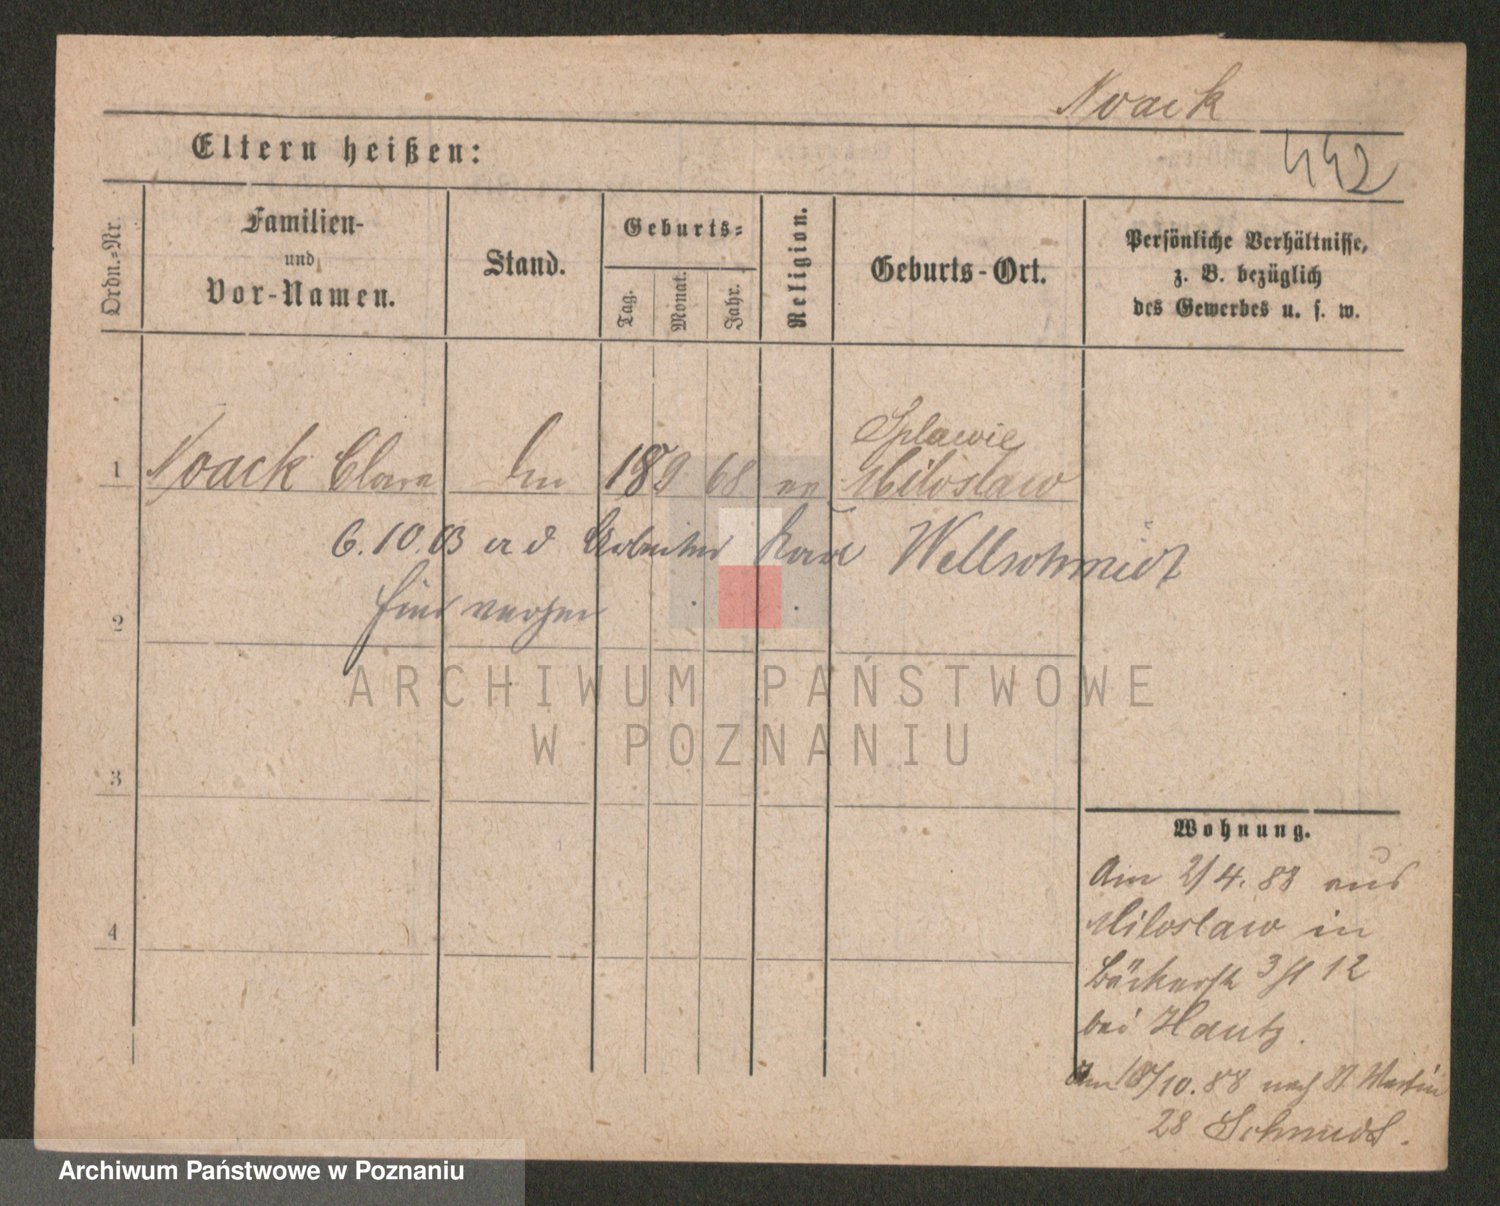 Noack
442
Eltern heißen:
Ordn.-Nr.
Familien-
und
Vor-Namen.
Stand.
Geburts-
Tag.
Monat.
Jahr.
Religion.
Geburts-Ort.
Persönliche Verhältnisse,
z. B. bezüglich
des Gewerbes u. s. w.
Splawie
1 Noack Clara 18 9 68 ev Miloslaw
6.10.03 Arbeiter Karl Wellschmidt
hier
2
ARCHIWUM PAŃSTWOWE
W POZNANIU
3
4
Wohnung.
Am 2/4. 88 aus
Miloslaw in
Bäckerstr 12
bei Hautz.
Am 18/10. 88 nach St Martin
28 Schmidt.
Archiwum Państwowe w Poznaniu